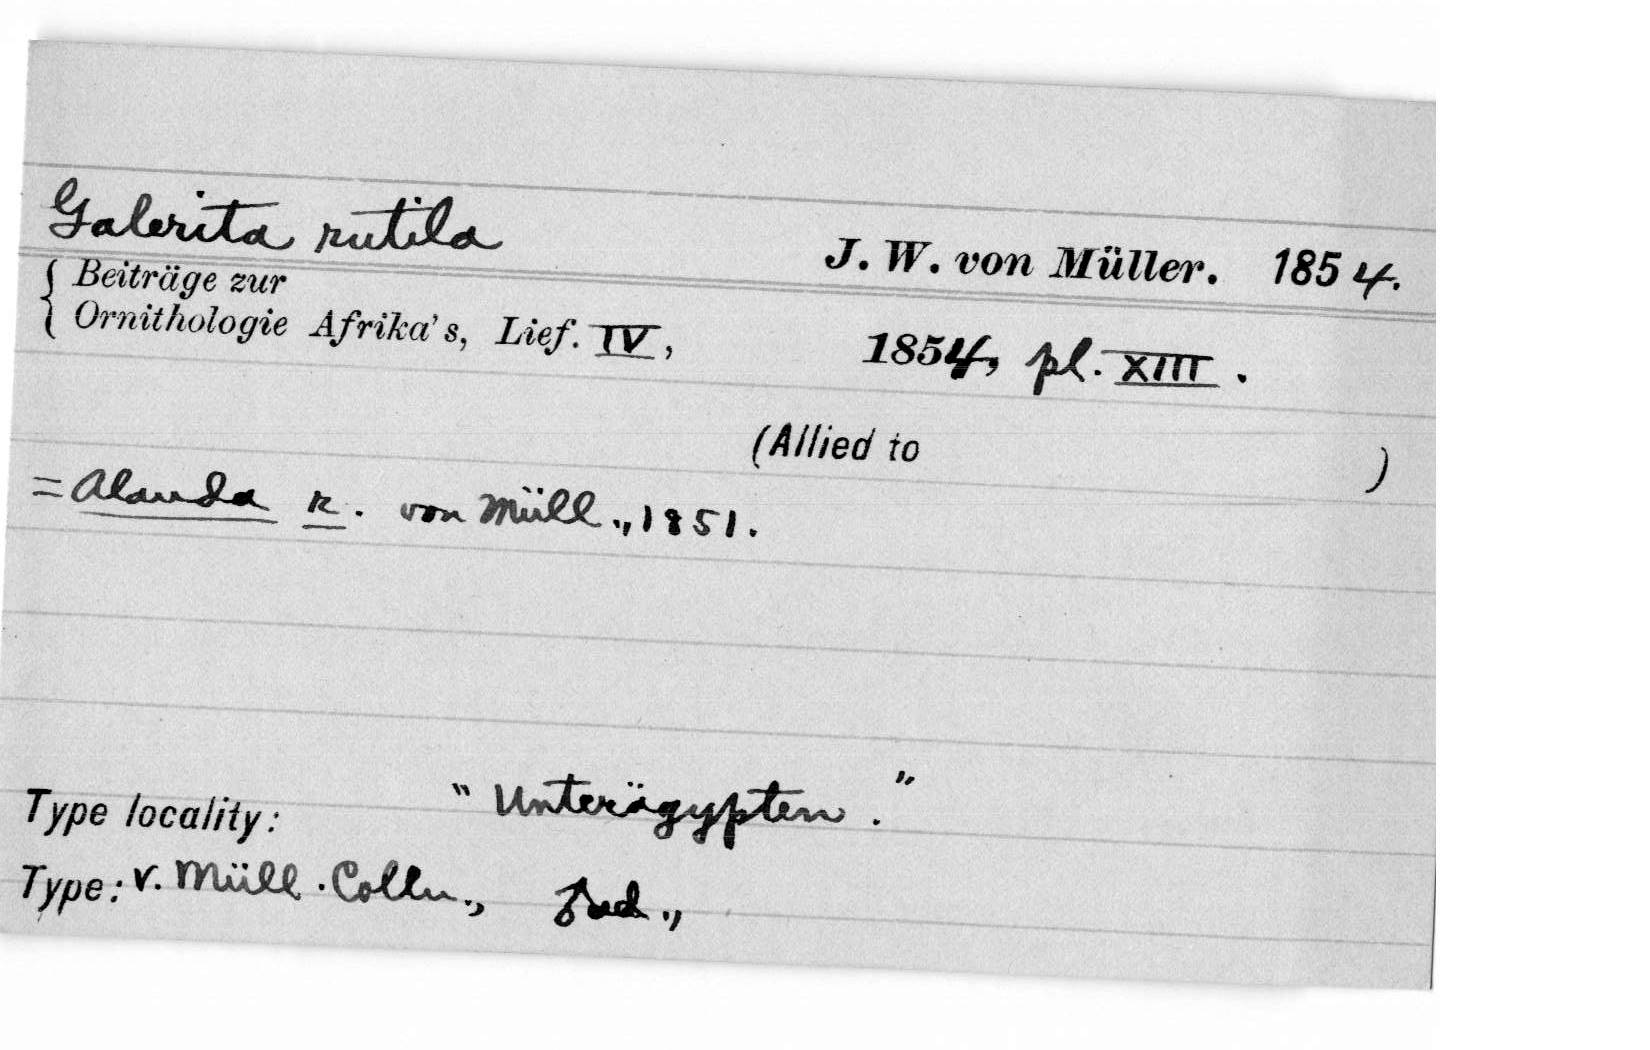 Galerita rutila J. W. von Müller. 1854.
{ Beiträge zur
Ornithologie Afrika's, Lief. IV, 1854, pl. XIII.
(Allied to )
= Alauda r. von Müll., 1851.
Type locality: "Unterägypten."
Type: v. Müll. Colln.,